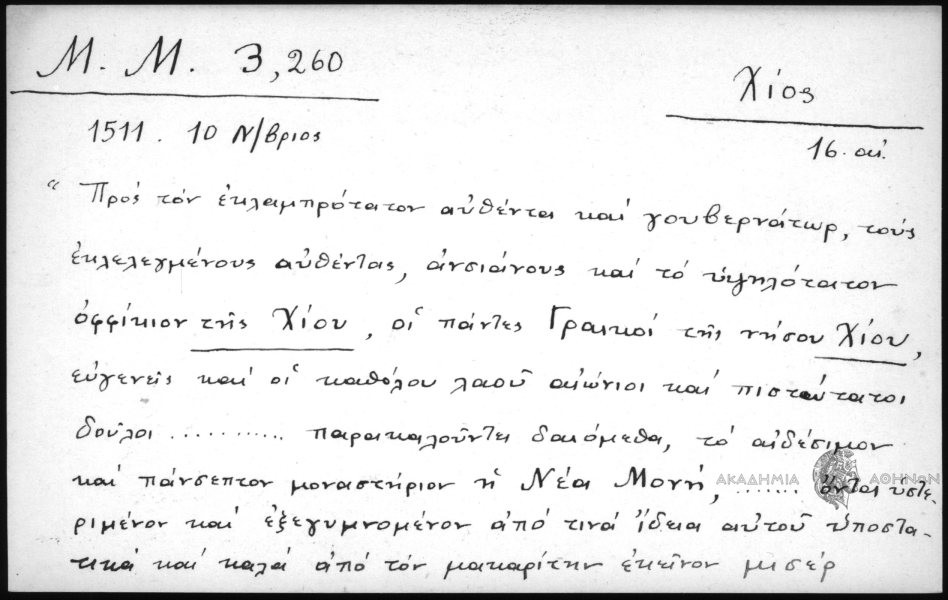 Μ. Μ. 3,260
Χίος
1511. 10 Ν/βριος
16. αἰ.
“ Πρὸς τὸν ἐκλαμπρότατον αὐθέντα καὶ γουβερνάτωρ, τοὺς
ἐκλελεγμένους αὐθέντας, ἀνσιάνους καὶ τὸ ὑψηλότατον
ὀφφίκιον τῆς Χίου, οἱ πάντες Γραικοί τῆς νήσου Χίου,
εὐγενεῖς καὶ οἱ καθόλου λαοῦ αἰώνιοι καὶ πιστότατοι
δοῦλοι ........... παρακαλοῦντες δεόμεθα, τὸ αἰδέσιμον
καὶ πάνσεπτον μοναστήριον ἡ Νέα Μονή, ....... ὄντας ὑστε-
ριμένον καὶ ἐξεγυμνομένον ἀπὸ τινὰ ἴδεια αὐτοῦ ὑποστα-
τικὰ καὶ καλὰ ἀπὸ τὸν μακαρίτην ἐκεῖνον μισὲρ
ΑΚΑΔΗΜΙΑ ΑΘΗΝΩΝ